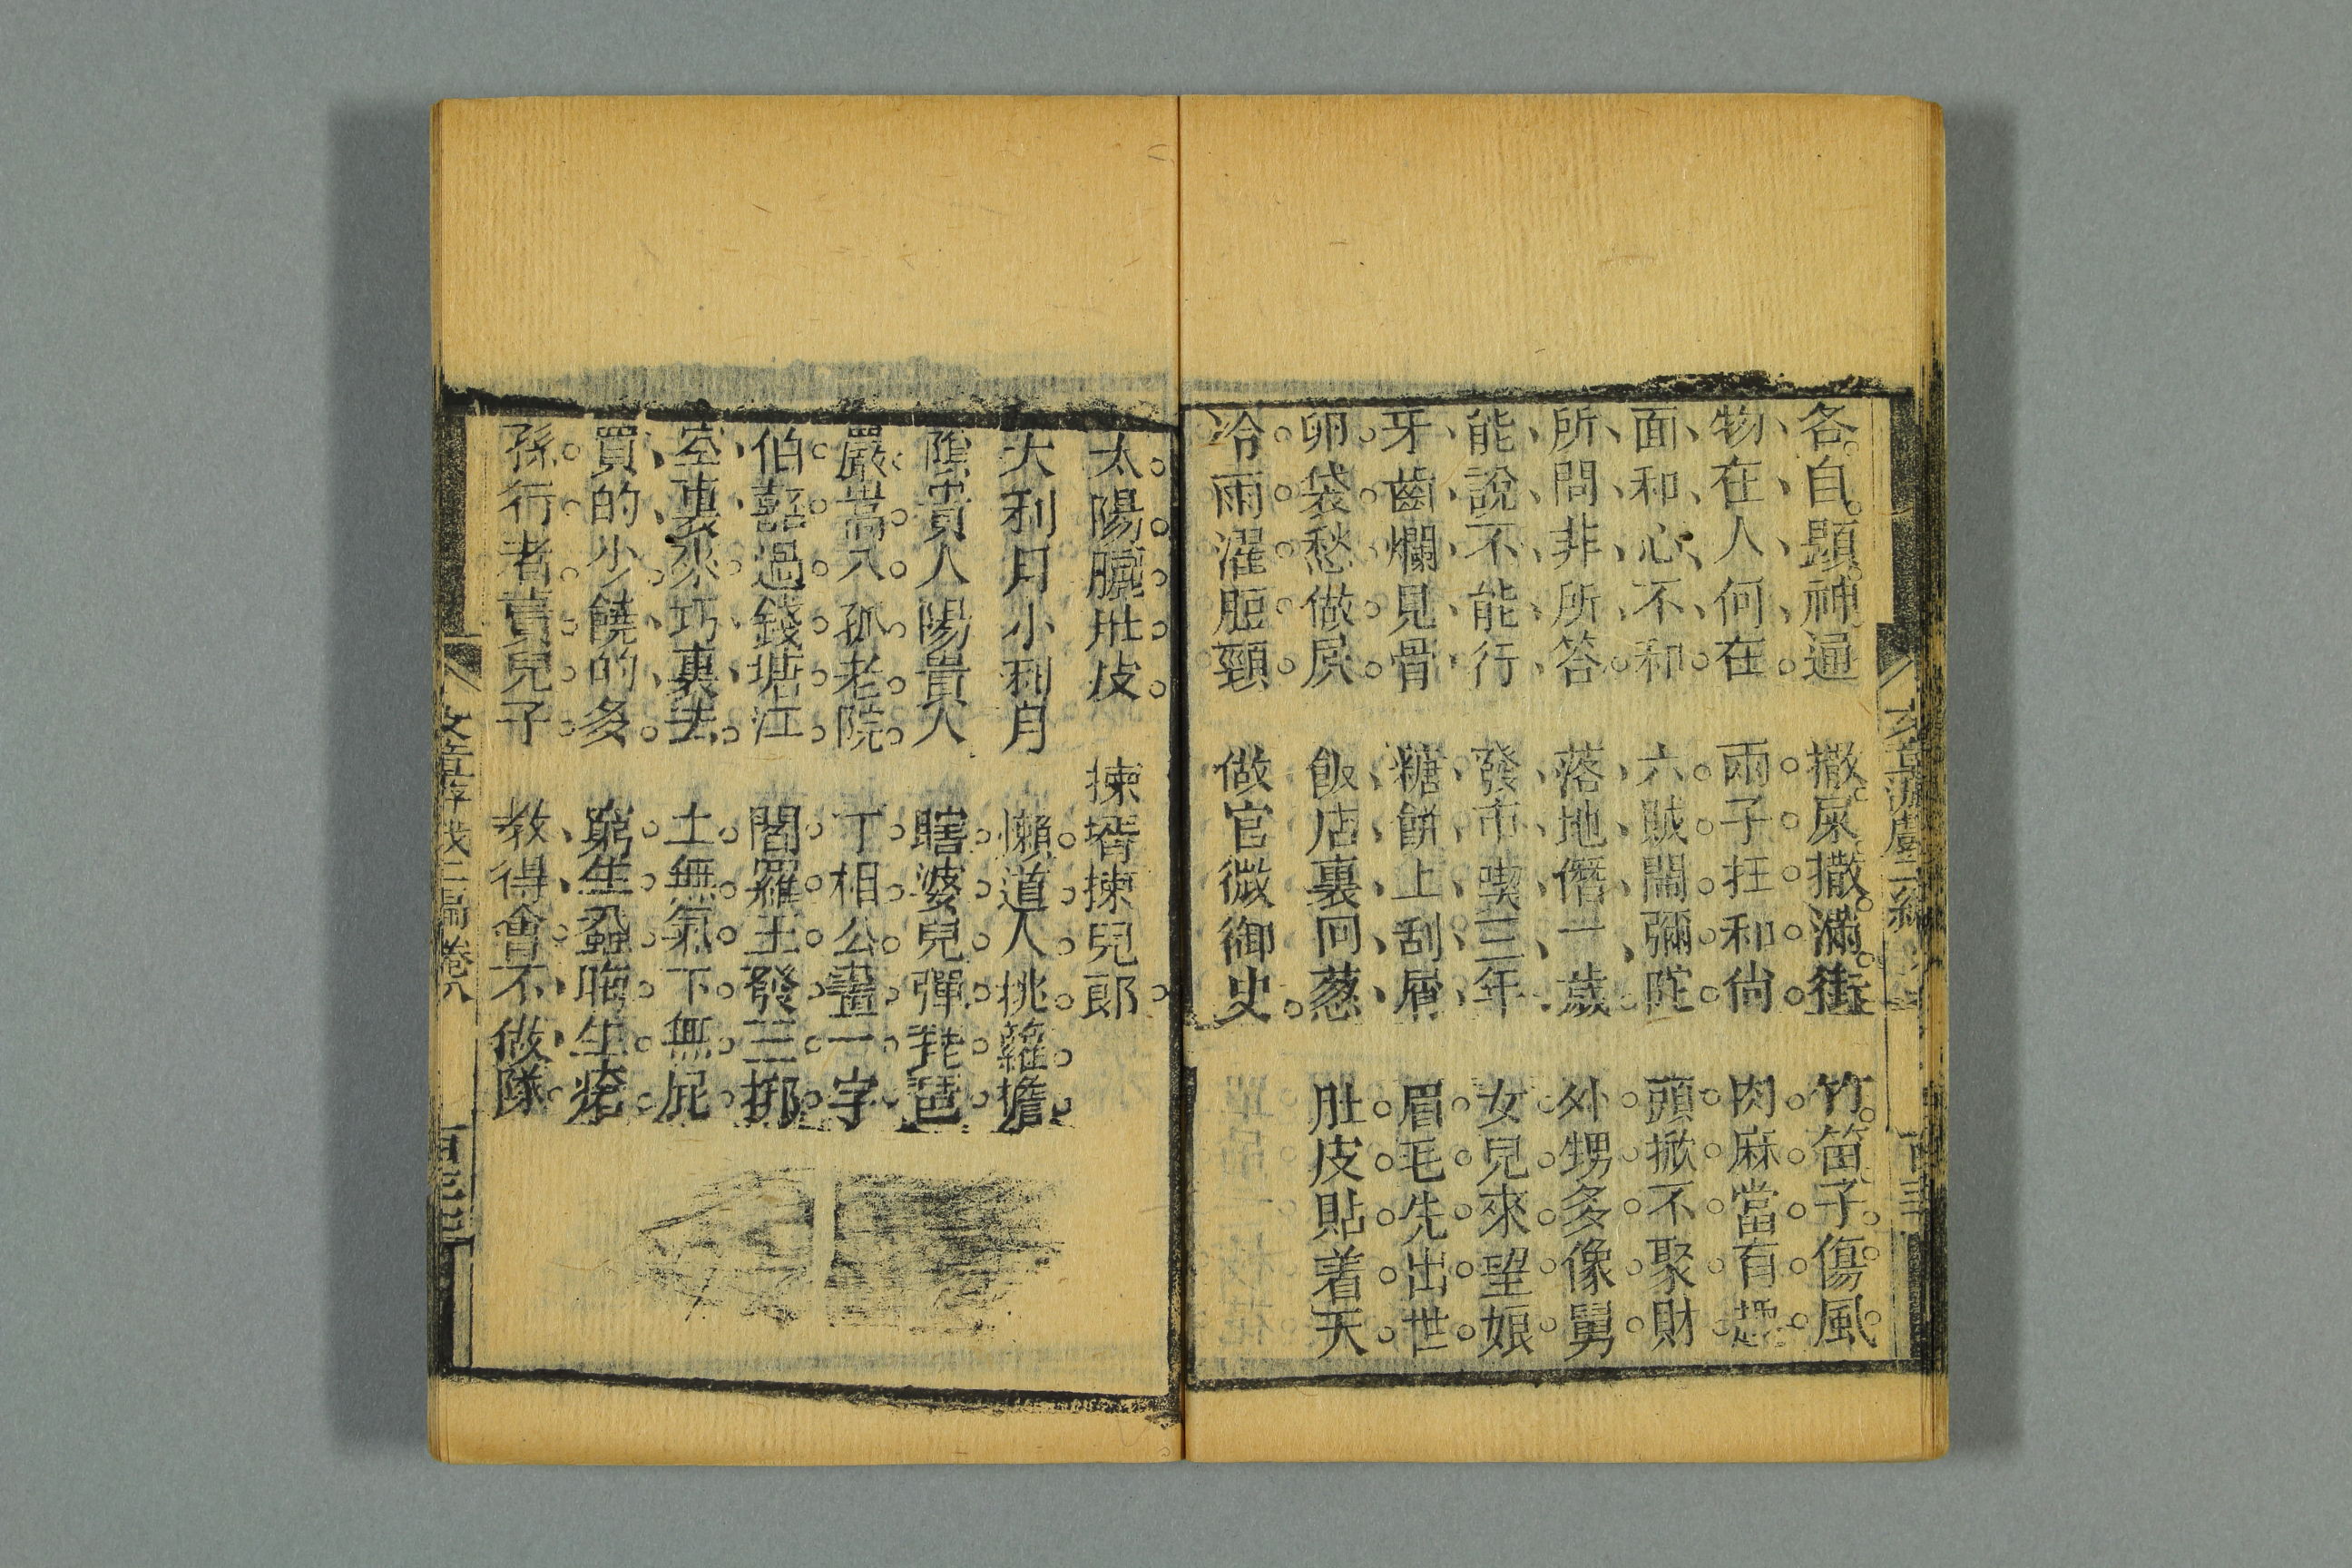 各自顯神通　撒尿撒滿街　竹笛子傷風
物在人何在　兩子抂和尙　肉麻當有趣
面和心不和　六賊鬧彌陀　頭掀不聚財
所問非所答　落地僭一歲　外甥多像舅
能說不能行　發市喫三年　女兒來望娘
牙齒爛見骨　糖餅上刮屑　眉毛先出世
卵袋愁做屄　飯店裏回葱　肚皮貼着天
冷雨濯脰頸　做官微御史
太陽臓肚皮　揀壻揀兒郞
大利月小利月　懶道人挑籮擔
陰貴人陽貴人　瞎婆兒彈琵琶
嚴嵩入孤老院　丁相公畫一字
伯嚭過錢塘江　閻羅王發三挷
空裏來巧裏去　土無氣下無屁
買的少饒的多　窮生蝨晦生瘡
孫行者賣兒子　教得會不做隊
文章游戲二編
卷八
百三三